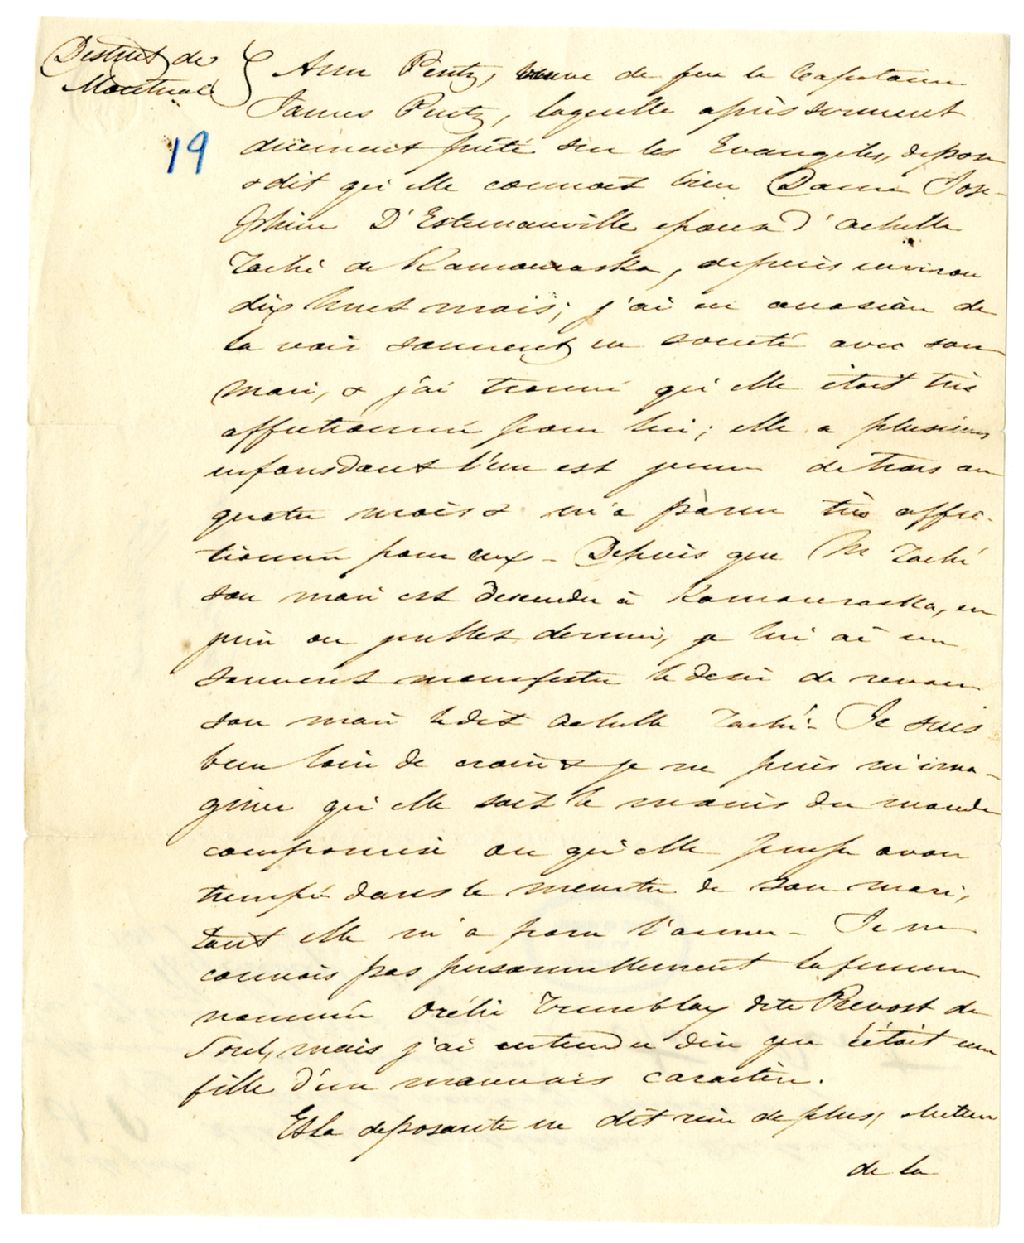 District de
Montreal
19
Ann Pentz, veuve de feu le Capitaine
James Pentz, laquelle après serment
duement prêté sur les Evangeles, depose
& dit qu'elle connoit bien Dame Jose-
phine D'Estimauville epouse d'achille
Taché de Kamouraska, depuis environ
dix huit mois; j'ai eu occasion de
la voir souvent en societé avec son
mari, & j'ai trouvé qu'elle étoit très
affectionnée pour lui; elle a plusieurs
enfans dont l'un est jeune de trois ou
quatre mois & m'a parue très affec-
tionnée pour eux - Depuis que M Taché
son mari est descendu à Kamouraska, en
juin ou juillet dernier, je lui ai vu
souvent manifester le desir de revoir
son mari ledit achille Taché - Je suis
bien loin de croire & je ne puis m'ima-
giner qu'elle soit le moins du monde
compromise ou qu'elle puisse avoir
trempé dans le meurtre de son mari,
tant elle m'a paru l'aimer - Je ne
connais pas personnellement la femme
nommée Orélie Tremblay dite Prevost de
Sorel, mais j'ai entendu dire que c'était une
fille d'un mauvais caractère.
Et la deposante ne dit rien de plus, lecture
de la